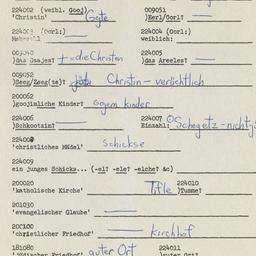 224002 (weibl. Goj) 009051
'Christin' Gojte )Eerl/Oorl?
224003 (Oorl:) 224004 (Oorl:)
weiblich:
009040 224005
)das Gaajes? + = die Christen )das Areeles?
009052
)Beez/Zeeg(te)? Christin – verächtlich
200062
(goojimliche Kinder? Gojem kinder
224006 224007
)Schkootzim? Einzahl: Schegetz – nicht jü
224008
'christliches Mädel' Schickse
224009
ein junges Schicks... (-el? -ele? -elche? &c)
200020 224010
'katholische Kirche' Tifle )Tumme?
201030
'evangelischer Glaube'
200100
'christlicher Friedhof' Kirchhof
181080 224011
'jüdischer Friedhof' guter Ort )guter Ort?